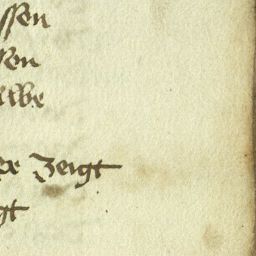 ssen
sen
albe
zeigt
gt